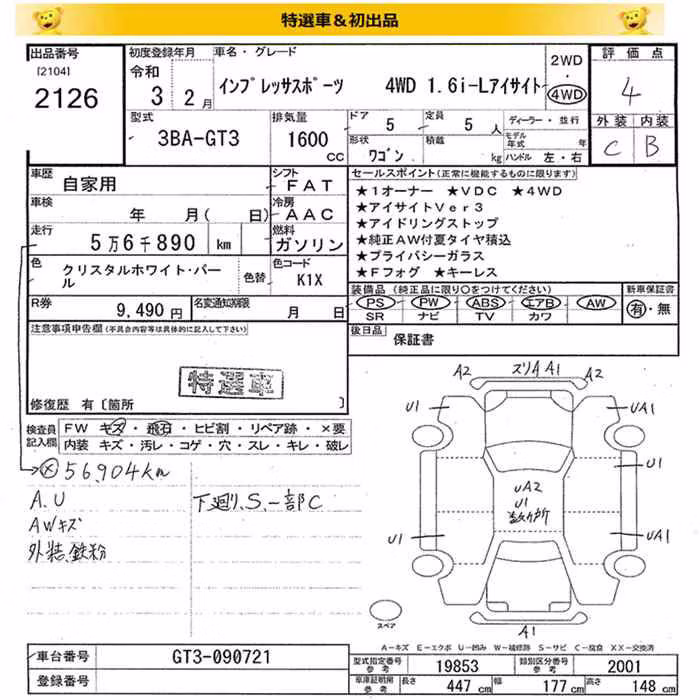 特選車＆初出品
出品番号
[2104]
2126
初度登録年月
令和
3 2月
車名・グレード
インプレッサスポーツ 4WD 1.6i-Lアイサイト
2WD
・
4WD
評価点
4
外装 内装
C B
型式
3BA-GT3
排気量
1600
CC
ドア 5
定員 5 人
形状
ワゴン
積載
kg
ディーラー・並行
モデル年式 年
ハンドル 左・右
車歴
自家用
シフト
FAT
車検
年 月( 日)
冷房
AAC
走行
5万6千890 km
燃料
ガソリン
色
クリスタルホワイト・パール
色替
色コード
K1X
R券
9,490円
名変通知期限
月 日
セールスポイント(正常に機能するものに限ります)
★1オーナー ★VDC ★4WD
★アイサイトVer3
★アイドリングストップ
★純正AW付夏タイヤ積込
★プライバシーガラス
★Fフォグ ★キーレス
装備品 (純正品に限り○をつけてください)
PS PW ABS エアB AW
SR ナビ TV カワ
新車保証書
有・無
後日品
保証書
注意事項申告欄(不具合内容等は具体的に記入して下さい)
特選車
修復歴 有〔箇所 〕
検査員記入欄
FW キズ・飛石・ヒビ割・リペア跡・×要
内装 キズ・汚レ・コゲ・穴・スレ・キレ・破レ
× 56,904km
A.U
AWキズ
外装.鉄粉
下廻り.S.一部C
A2 スリA A1 A2
U1 UA1
U1
UA2
U1
U1 UA1
A1
スペア
A－キズ E－エクボ U－凹み W－補修跡 S－サビ C－腐食 XX－交換済
車台番号
GT3-090721
登録番号
型式指定番号
参考
19853
類別区分番号
参考
2001
車庫証明用
参考
長さ 447 cm
幅 177 cm
高さ 148 cm